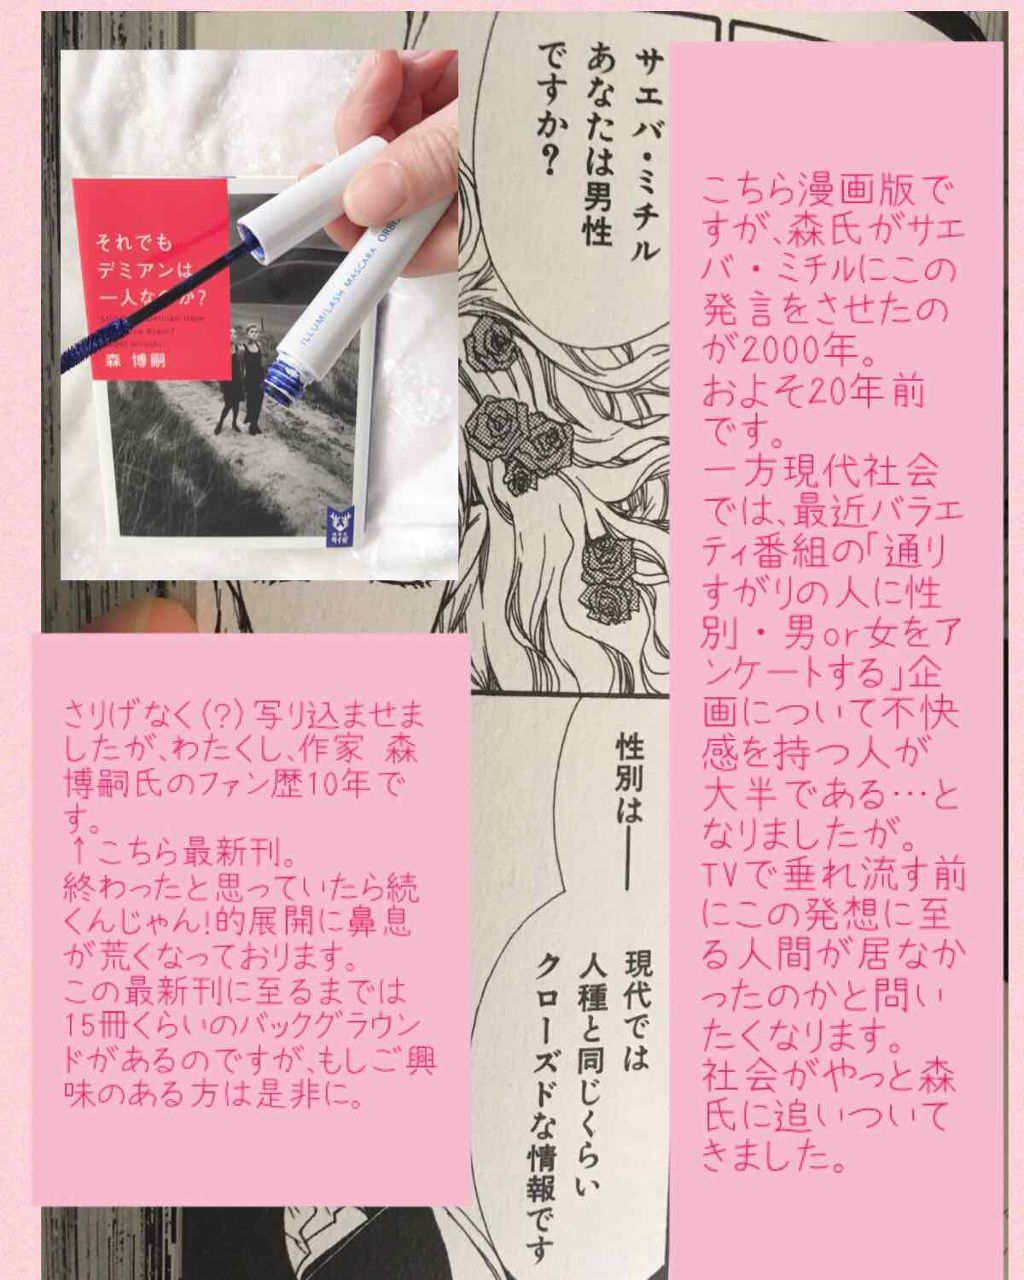 サエバ・ミチル
あなたは男性
ですか?
それでも
デミアンは
一人なのか?
森 博嗣
ILLUMILASH MASCARA ORBI
こちら漫画版で
すが、森氏がサエ
バ・ミチルにこの
発言をさせたの
が2000年。
およそ20年前
です。
一方現代社会
では、最近バラエ
ティ番組の「通り
すがりの人に性
別・男or女をア
ンケートする」企
画について不快
感を持つ人が
大半である…と
なりましたが。
TVで垂れ流す前
にこの発想に至
る人間が居なか
ったのかと問い
たくなります。
社会がやっと森
氏に追いついて
きました。
さりげなく(?)写り込ませま
したが、わたくし、作家 森
博嗣氏のファン歴10年で
す。
↑こちら最新刊。
終わったと思っていたら続
くんじゃん!的展開に鼻息
が荒くなっております。
この最新刊に至るまでは
15冊くらいのバックグラウン
ドがあるのですが、もしご興
味のある方は是非に。
性別は――
現代では
人種と同じくらい
クローズドな情報です